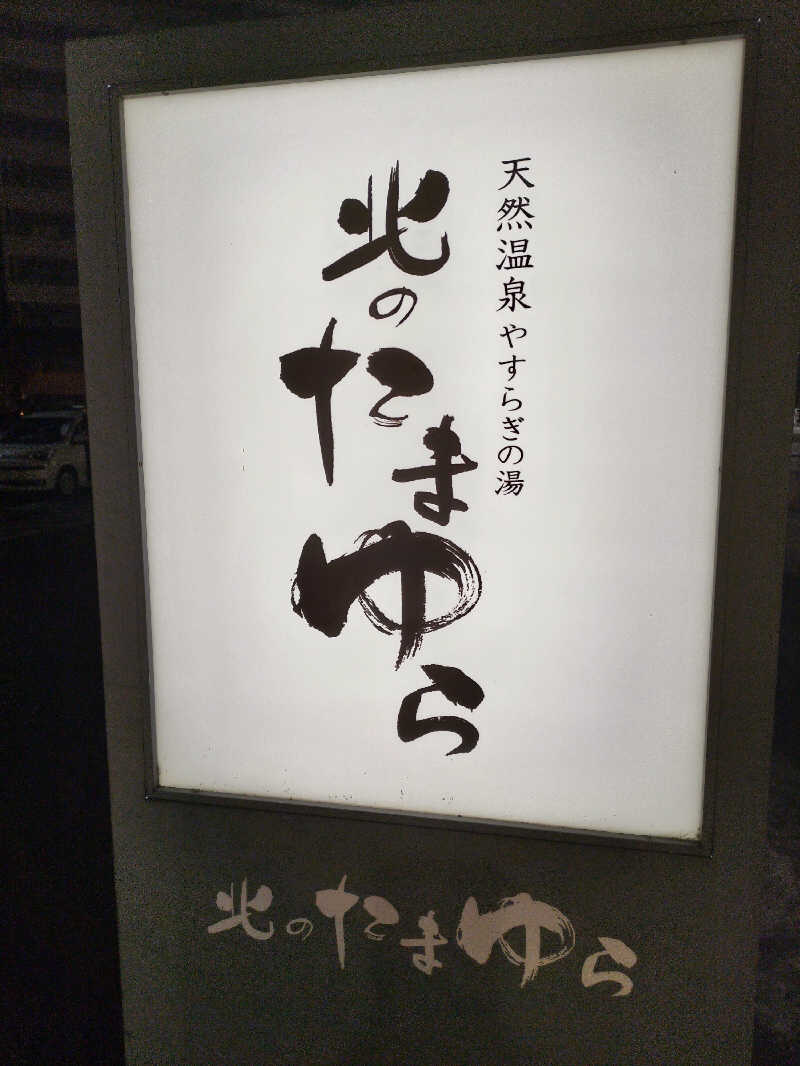 天然温泉やすらぎの湯
北のたまゆら
北のたまゆら